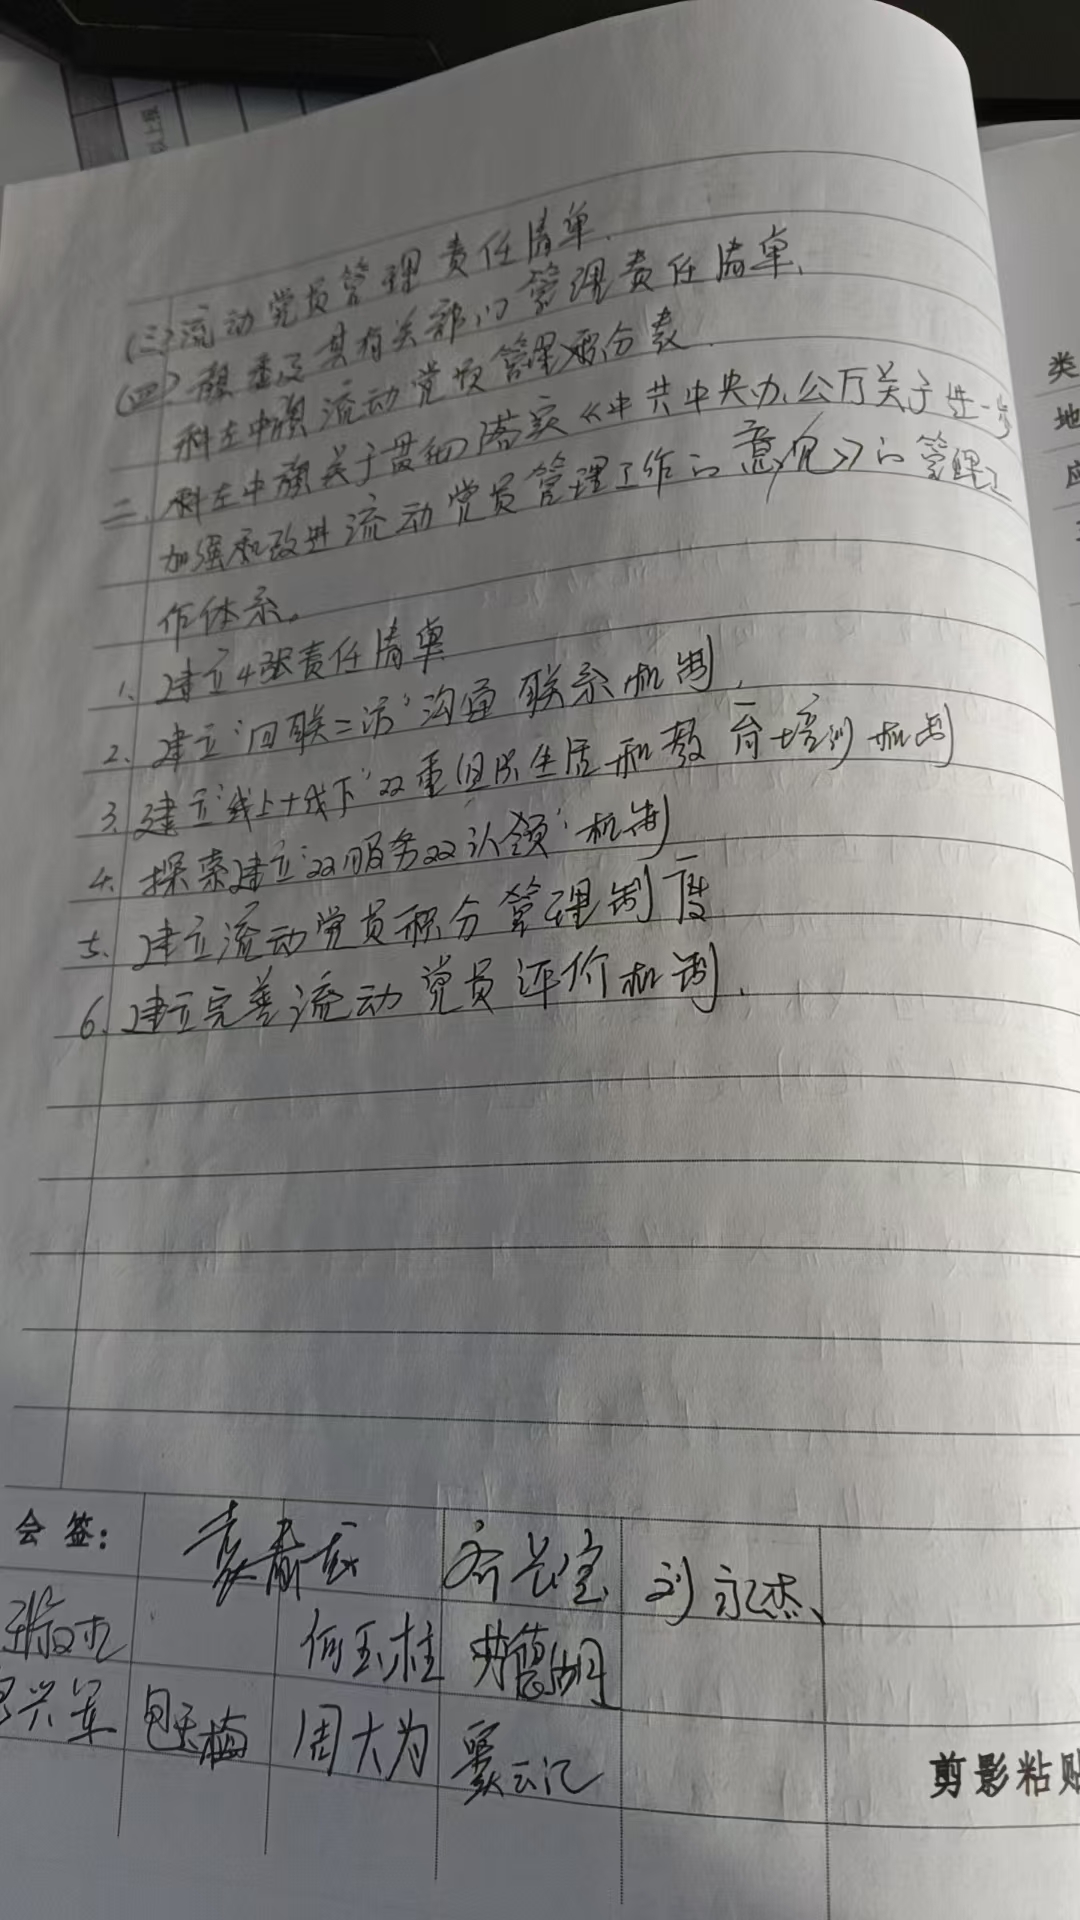 以上报
(三)流动党员管理责任清单.
(四)旗委及其有关部门管理责任清单、
科左中旗流动党员管理积分表.
二、科左中旗关于贯彻落实《中共中央办公厅关于进一步
加强和改进流动党员管理工作的意见》的管理工
作体系。
1、建立4张责任清单
2、建立“四联二访”沟通联系机制,
3、建立“线上+线下”双重组织生活和教育培训机制
4、探索建立“双服务双认领”机制
5、建立流动党员积分管理制度
6、建立完善流动党员评价机制.
类
地
应
会签:
齐长宝
刘永杰、
何玉柱
兴军
包玉梅
周大为
剪影粘贴